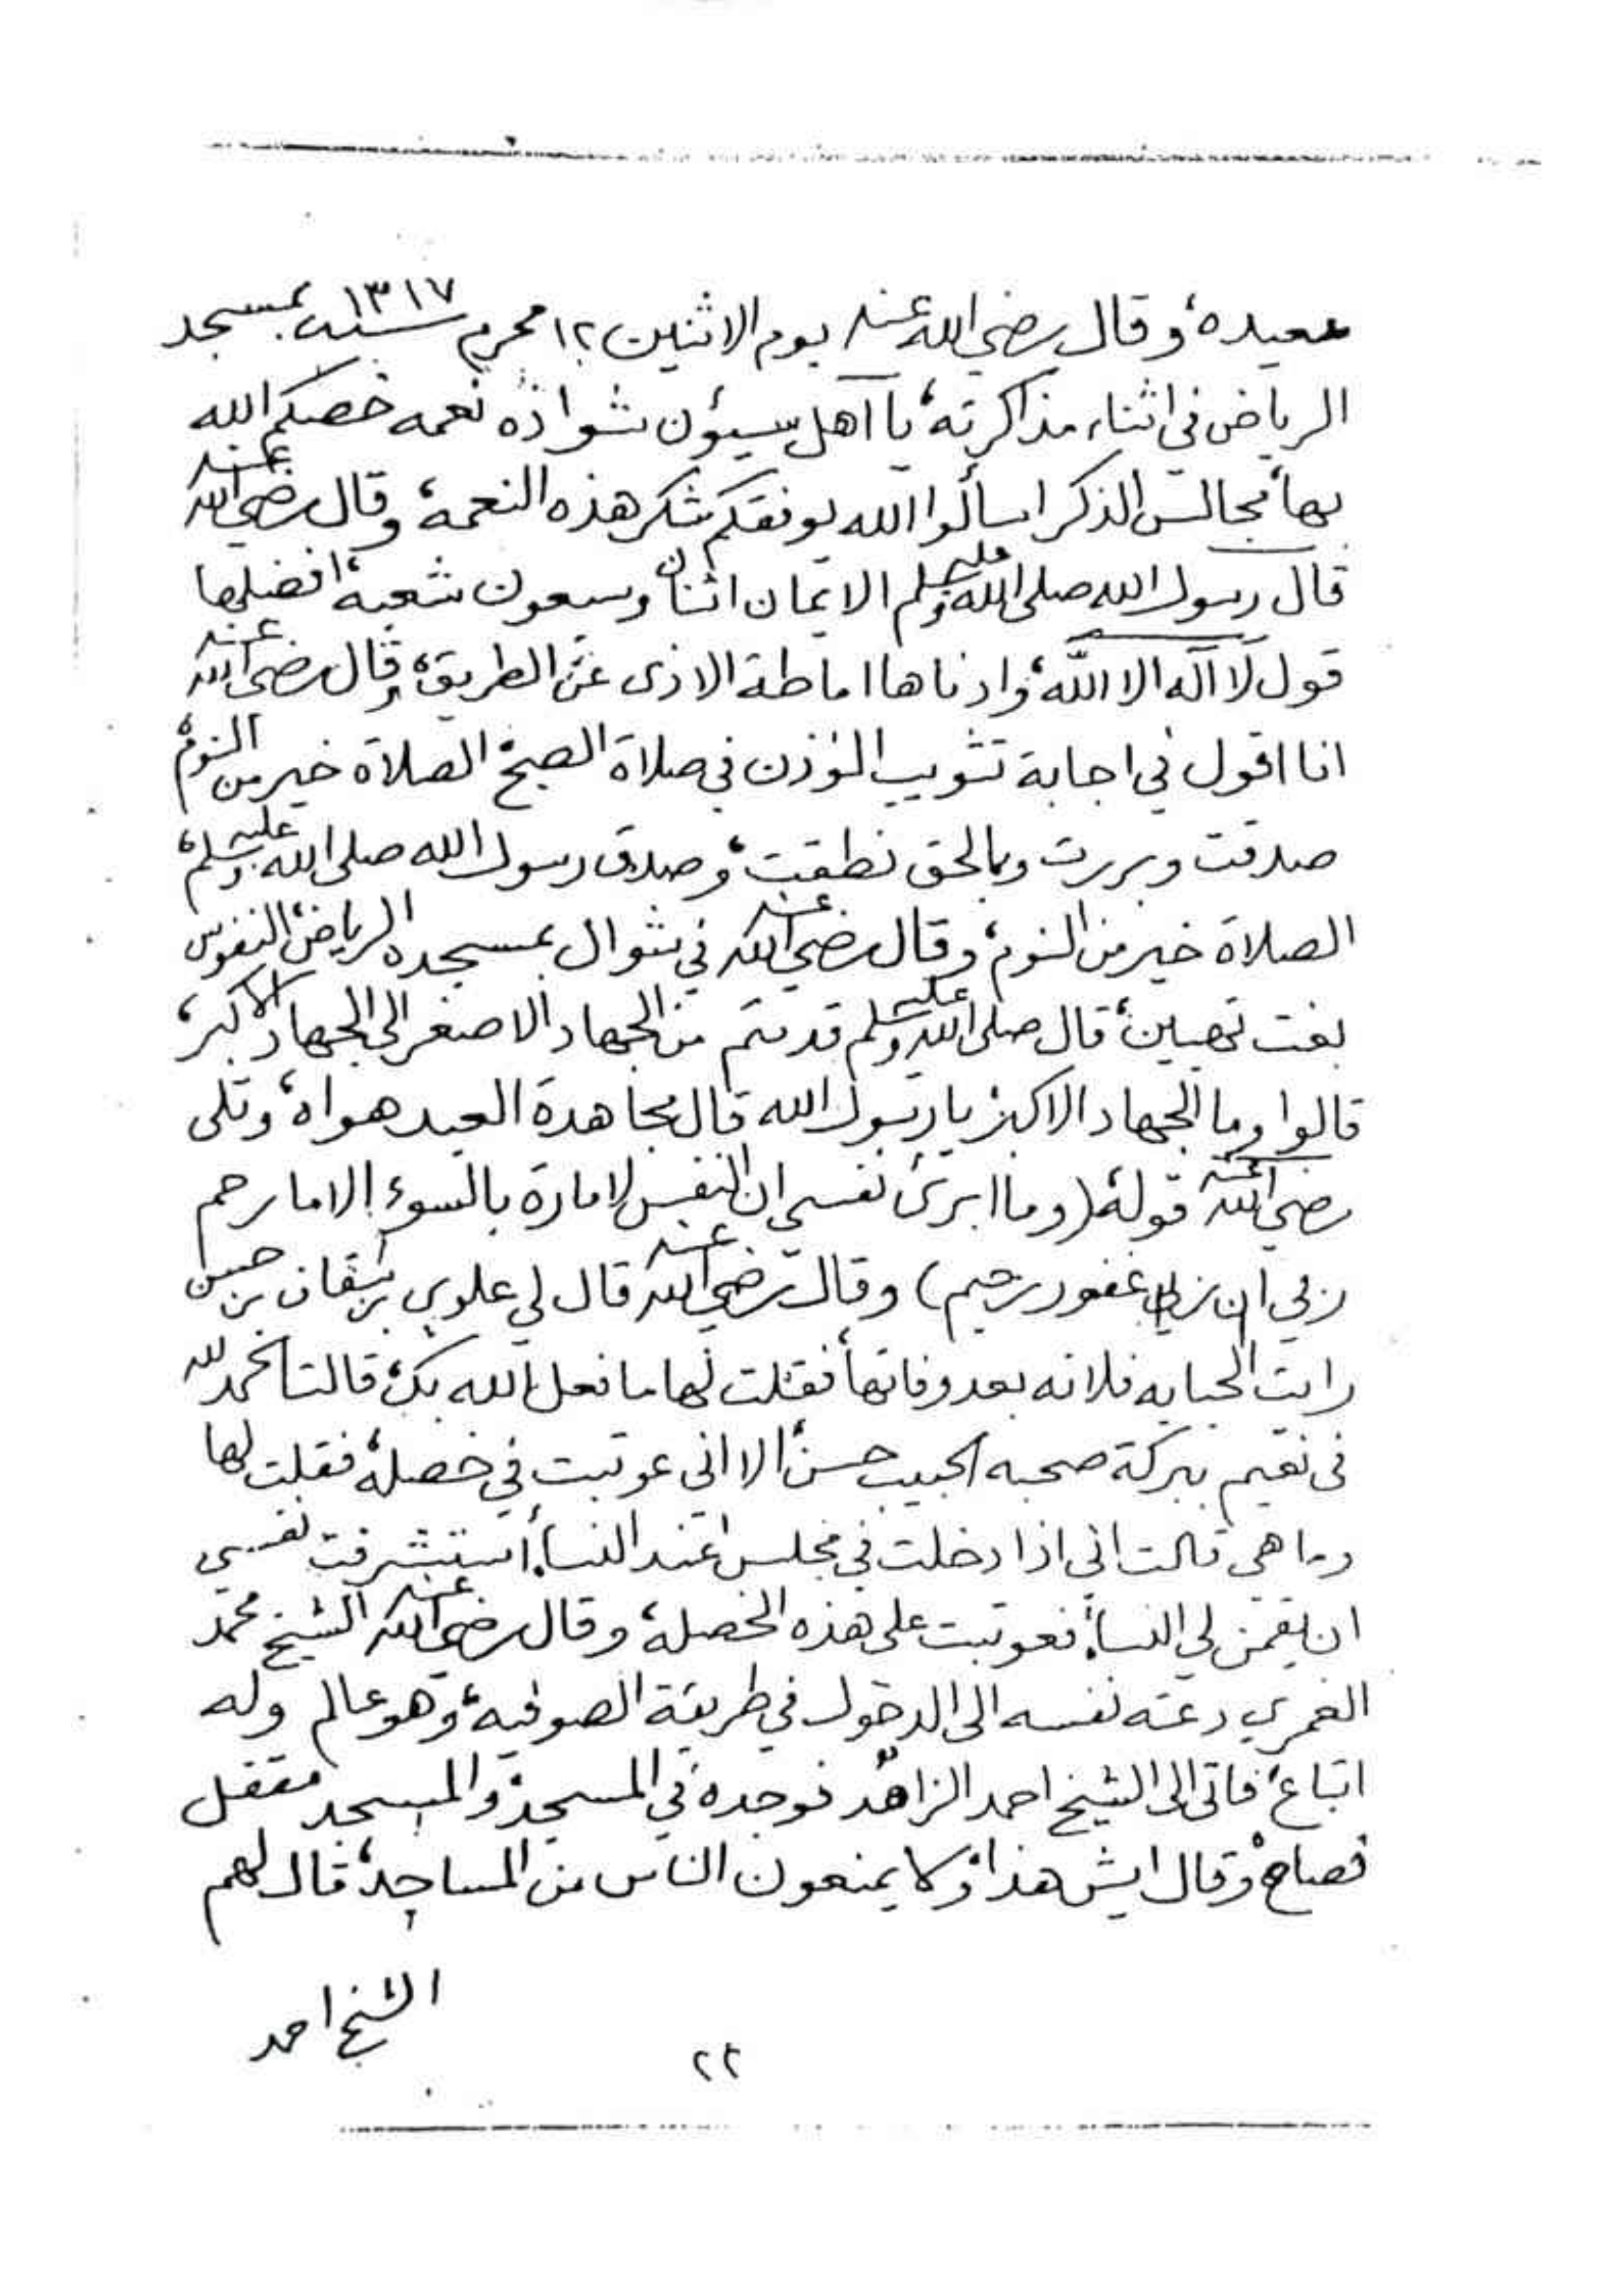 سعيده، وقال رضي الله عنه يوم الاثنين ١٢ محرم سنة ١٣١٧ بمسجد
الرياض في اثناء مذاكرته، يا آهل سيؤن شوا ذه نعمه خصكم الله
بها، مجالس الذكر اسألوا الله يوفقكم شكر هذه النعمة، وقال رضي الله عنه
قال رسول الله صلى الله عليه وسلم الايمان اثنان وسبعون شعبة، افضلها
قول لا اله الا الله، وادناها اماطة الاذى عن الطريق، وقال رضي الله عنه
انا اقول في اجابة تثويب المؤذن في صلاة الصبح الصلاة خير من النوم،
صدقت وبررت وبالحق نطقت، وصدق رسول الله صلى الله عليه وسلم،
الصلاة خير من النوم، وقال رضي الله عنه في شوال بمسجده الرياض، النفوس
بغت تهبين، قال صلى الله عليه وسلم قدمتم من الجهاد الاصغر الى الجهاد الاكبر،
قالوا وما الجهاد الاكبر يا رسول الله قال مجاهدة العبد هواه، وتلى
رضي الله عنه قوله، (وما ابرئ نفسي ان النفس لامارة بالسوء الا ما رحم
ربي ان ربي غفور رحيم) وقال رضي الله عنه قال لي علوي بن سقاف بن حسن
رايت الحبابه فلانه بعد وفاتها، فقلت لها ما فعل الله بك، قالت الحمد لله
في نعيم ببركة صحبه الحبيب حسن، الا اني عوتبت في خصلة، فقلت لها
وما هي قالت اني اذا دخلت في مجلس عند النساء، استشرفت نفسي
ان يقمن لي النساء، فعوتبت على هذه الخصله، وقال رضي الله عنه الشيخ محمد
الغمري دعته نفسه الى الدخول في طريقة الصوفيه، وهو عالم وله
اتباع، فاتى الى الشيخ احمد الزاهد فوجده في المسجد، والمسجد مقفل
فصاح، وقال ايش هذا، وكا يمنعون الناس من المساجد، قال لهم
الشيخ احمد
٢٢